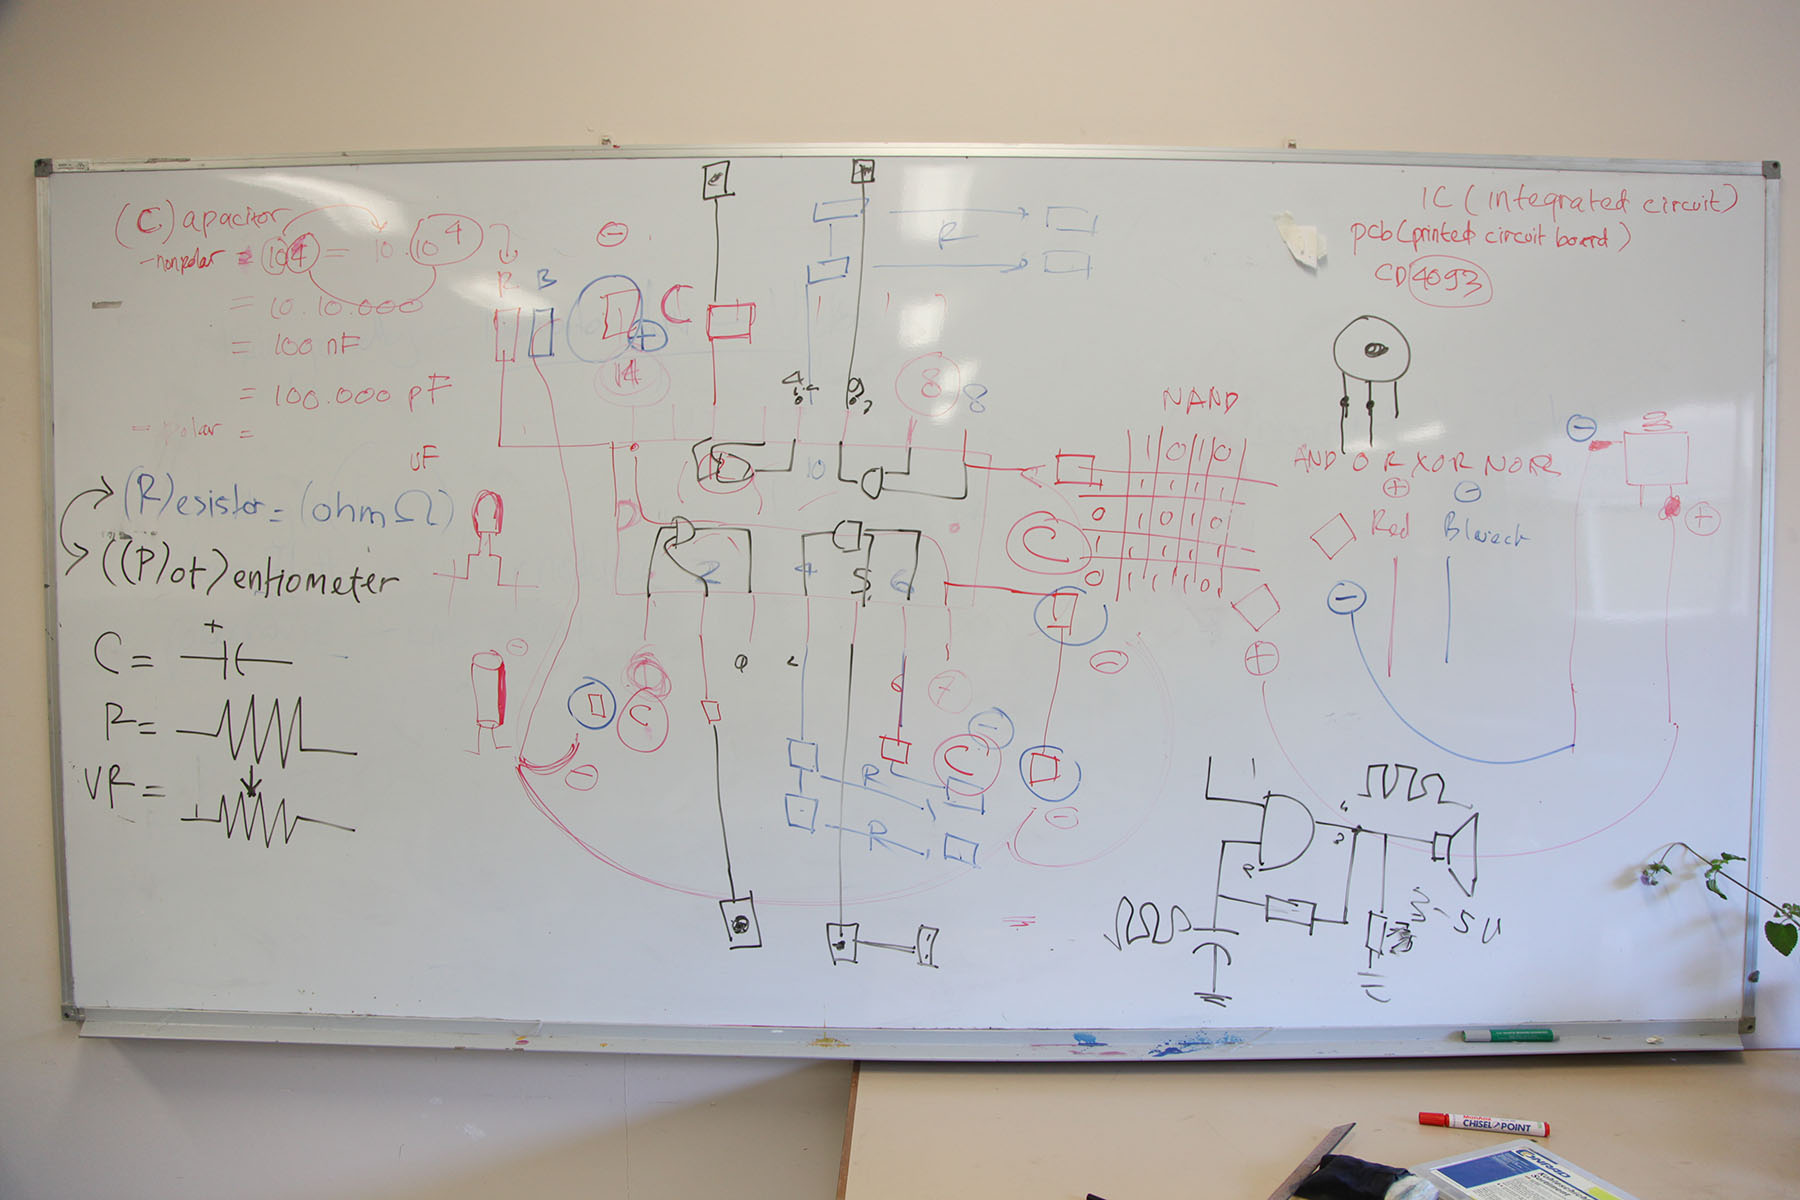 (C)apacitor
-nonpolar = 104 = 10.10⁴
= 10.10.000
= 100 nF
= 100.000 pF
- polar =
uF
(R)esistor = (ohm Ω)
((P)ot)entiometer
C =
+
R =
VR =
R B
C
+
14
8
8
12
10
2
4
5
6
6
7
C
C
R
R
R
C
NAND
1 0 1 0
1 1 1 1 1
0 1 0 1 0
1 1 1 1 1
0 1 1 1 0
IC (integrated circuit)
pcb (printed circuit board)
CD 4093
AND OR XOR NOR
+ -
Red Blaeck
-
+
-
+
1
2
3-5 U
CHISEL POINT
CONRAD